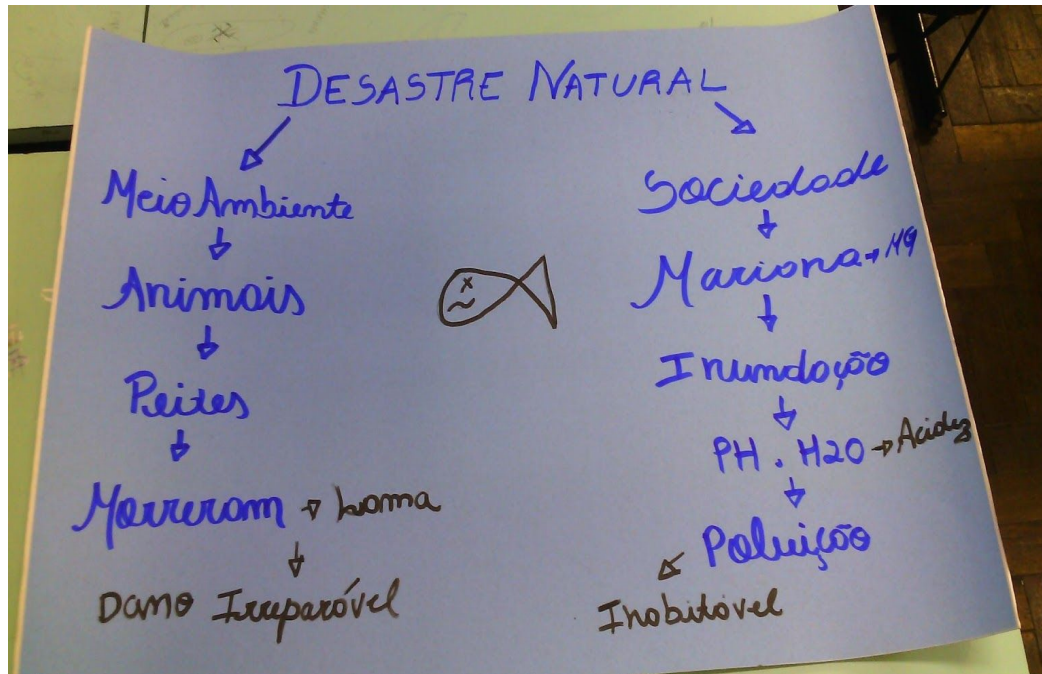 DESASTRE NATURAL
Meio Ambiente
Animais
Peixes
Morreram → Lama
Dano Irreparável
Sociedade
Mariana → MG
Inundação
PH . H2O → Acidez
Poluição
Inabitável